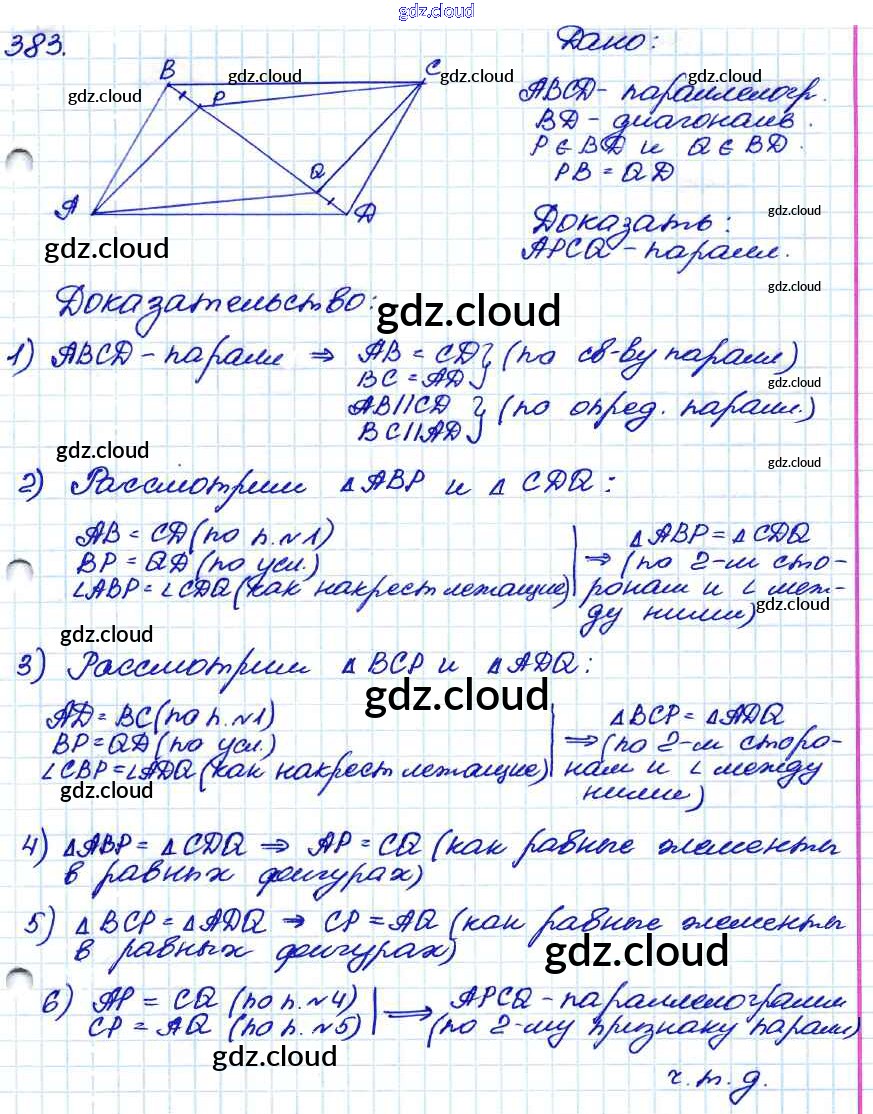 gdz.cloud
383.
Дано:
B
C
P
Q
A
D
gdz.cloud
gdz.cloud
gdz.cloud
ABCD - параллелогр.
BD - диагональ.
P ∈ BD и Q ∈ BD.
PB = QD
Доказать:
gdz.cloud
APCQ - паралл.
gdz.cloud
gdz.cloud
Доказательство:
gdz.cloud
1) ABCD - паралл ⇒ AB = CD } (по св-ву паралл)
BC = AD
gdz.cloud
AB||CD } (по опред. паралл.)
BC||AD
gdz.cloud
gdz.cloud
2) Рассмотрим △ABP и △CDQ:
AB = CD (по п.№1) | △ABP = △CDQ
BP = QD (по усл.) | ⇒ (по 2-м сто-
∠ABP = ∠CDQ (как накрест лежащие) | ронам и ∠ меж-
ду ними)
gdz.cloud
gdz.cloud
3) Рассмотрим △BCP и △ADQ:
gdz.cloud
AD = BC (по п.№1) | △BCP = △ADQ
BP = QD (по усл.) | ⇒ (по 2-м сторо-
∠CBP = ∠ADQ (как накрест лежащие) | нам и ∠ между
ними)
gdz.cloud
4) △ABP = △CDQ ⇒ AP = CQ (как равные элементы
в равных фигурах)
5) △BCP = △ADQ ⇒ CP = AQ (как равные элементы
в равных фигурах)
gdz.cloud
6) AP = CQ (по п.№4) | ⇒ APCQ - параллелограмм
CP = AQ (по п.№5) | (по 2-му признаку паралл)
gdz.cloud
ч.т.д.